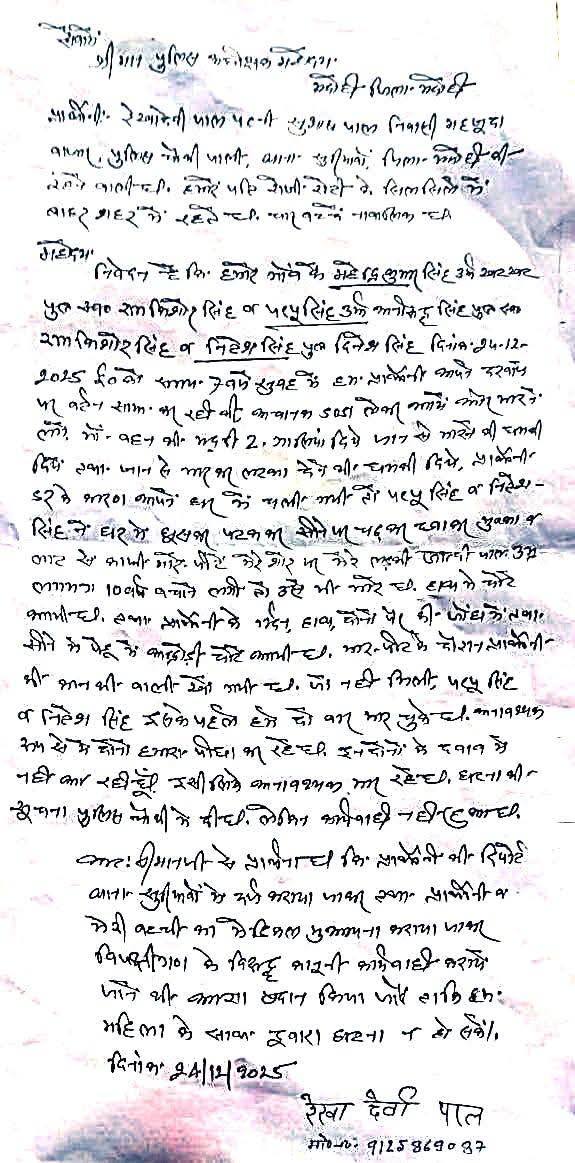 सेवा में
श्रीमान पुलिस अधीक्षक महोदय
भदोही जिला- भदोही
प्रार्थिनी- रेखा देवी पाल पत्नी सुभाष पाल निवासी
बाजार, पुलिस चौकी पाली, थाना सुरियावां, जिला- भदोही की
रहने वाली हूँ. हमारे पति रोजी रोटी के सिलसिले में
बाहर शहर में रहते हैं. चार बच्चे नाबालिक हैं
महोदय
निवेदन है कि हमारे गाँव के महेन्द्र कुमार सिंह उर्फ
पुत्र स्व० राम किशोर सिंह व पप्पू सिंह उर्फ सिंह पुत्र स्व०
राम किशोर सिंह व नितेश सिंह पुत्र दिनेश सिंह दिनांक- 24-12-
2025 ई० को समय- 7 बजे सुबह में हम प्रार्थिनी अपने दरवाजे
पर बर्तन साफ कर रही थी अचानक डण्डा लेकर आये और मारने
लगे, माँ- बहन की भद्दी 2 गालियां दिये जान से मारने की धमकी
दिये तथा जान से मार कर लटका देने की धमकी दिये, प्रार्थिनी
डर के कारण अपने घर में चली गयी तो पप्पू सिंह व नितेश-
सिंह ने घर में घुसकर पटक कर सीने पर चढ़ कर दबाकर मुक्का व
लात से काफी मारे- पीटे मेरे शोर पर मेरे लड़की पाल उम्र
लगभग 10 वर्ष बचाने लगी तो उसे भी मारे हैं. हाथ में चोटें
आयी हैं. तथा प्रार्थिनी के गर्दन, हाथ, दोनों पैर की जांघ में तथा-
सीने में पेडू में चोटें आयी हैं. मार-पीट के दौरान प्रार्थिनी-
की कान की बाली खो गयी है. जो नहीं मिली, पप्पू सिंह
व नितेश सिंह इसके पहले हमें दो बार मार चुके हैं. अनावश्यक
रूप से ये दोनों हमारा पीछा कर रहे हैं. इन दोनों के दबाव में
नहीं आ रही हूँ. इसी लिये अनावश्यक मार रहे हैं. घटना की-
सूचना पुलिस चौकी में दी हूँ. लेकिन कार्यवाही नहीं हुआ है.
अतः श्रीमानजी से प्रार्थना है कि प्रार्थिनी की रिपोर्ट
थाना सुरियावां में दर्ज कराया जाकर तथा प्रार्थिनी व
मेरी बच्ची का मेडिकल मुआयना कराया जाकर
विपक्षीगण के विरुद्ध कानूनी कार्यवाही कराये
जाने की आज्ञा प्रदान किया जावे ताकि हम
महिला के साथ दुबारा घटना न हो सके।
दिनांक 24/12/2025
रेखा देवी पाल
मो०नं०: 9125869087